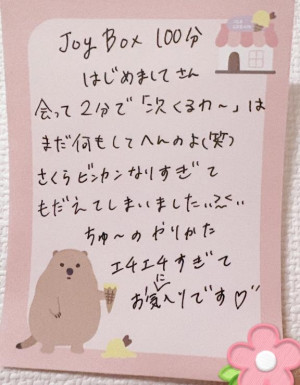 Joy Box 100分
はじめましてさん
会って2分で「次くるわ〜」は
まだ何もしてへんのよ(笑)
さくらビンカンなりすぎて
もだえてしまいました
ちゅ〜のやりかた
エチエチすぎて
お気に入りです♡